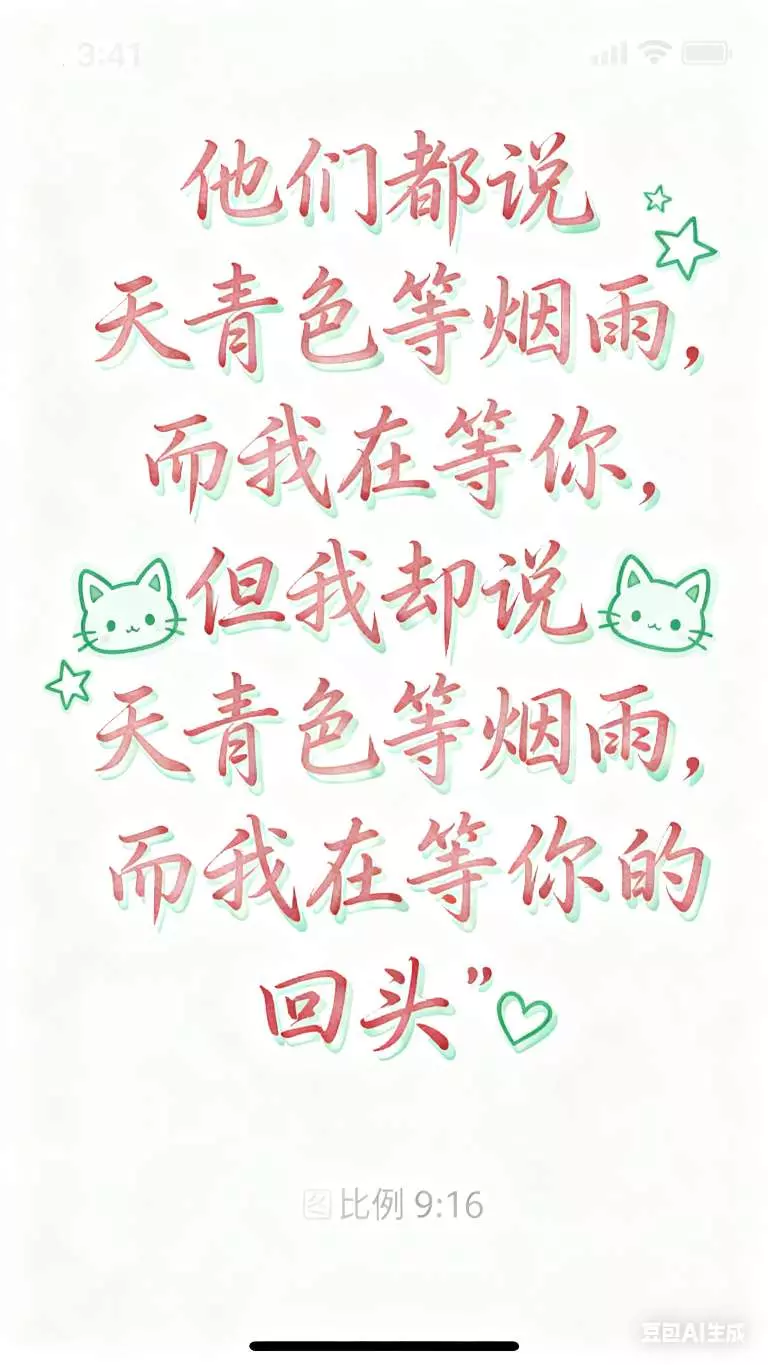 3:41
他们都说
天青色等烟雨,
而我在等你,
但我却说
天青色等烟雨,
而我在等你的
回头”
图 比例 9:16
豆包AI生成